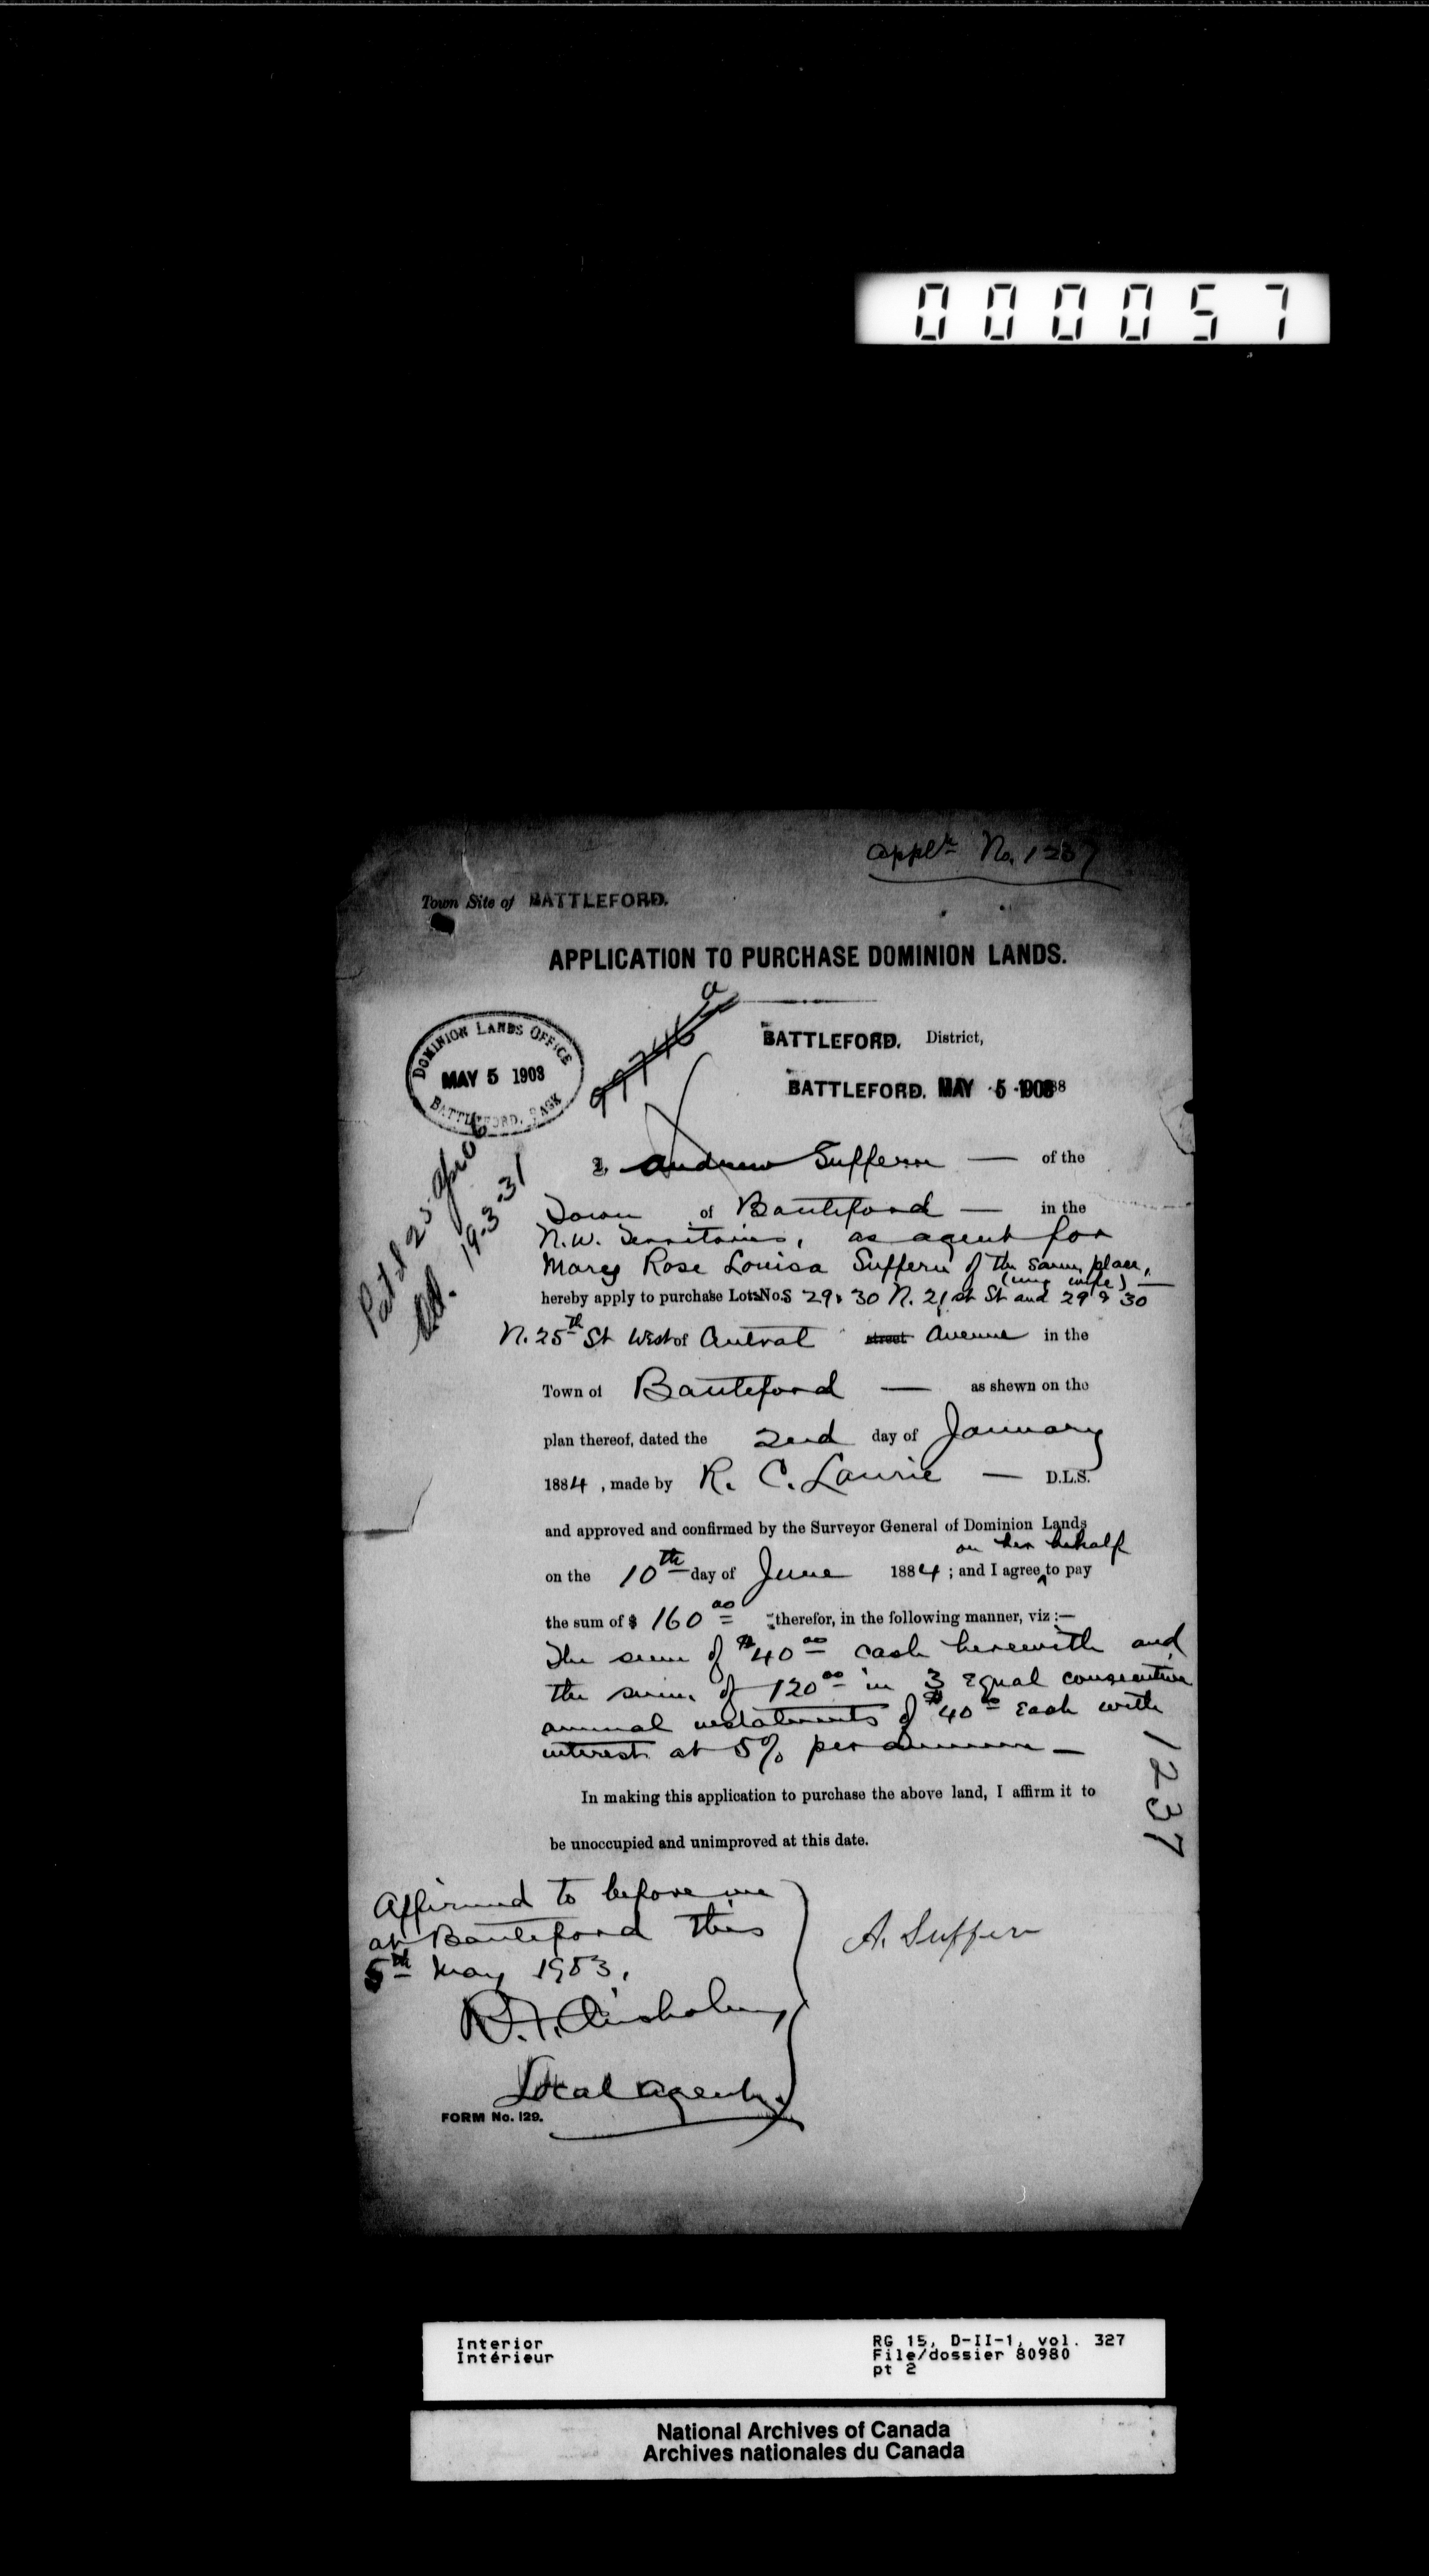 000057
Appl'n No. 1237
Town Site of BATTLEFORD.
APPLICATION TO PURCHASE DOMINION LANDS.
DOMINION LANDS OFFICE
MAY 5 1903
BATTLEFORD, SASK
BATTLEFORD. District,
BATTLEFORD. MAY 5 1903
I, Andrew Suffern — of the
Town of Battleford — in the
N.W. Territories, as agent for
Mary Rose Louisa Suffern of the same place,
(my wife) —
hereby apply to purchase Lots Nos 29 & 30 N. 21st St and 29 & 30
N. 25th St West of Central street Avenue in the
Town of Battleford — as shewn on the
plan thereof, dated the 2nd day of January
1884, made by R. C. Laurie — D.L.S.
and approved and confirmed by the Surveyor General of Dominion Lands
on her behalf
on the 10th day of June 1884; and I agree ^ to pay
the sum of $ 160 00 therefor, in the following manner, viz:—
The sum of $40 00 cash herewith and
the sum of 120 00 in 3 equal consecutive
annual instalments of $40 00 each with
interest at 5% per annum —
In making this application to purchase the above land, I affirm it to
be unoccupied and unimproved at this date.
1237
Affirmed to before me
at Battleford this
5th May 1903.
A. Suffern
Chisholm
Local Agent.
FORM No. 129.
Interior
Intérieur
RG 15, D-II-1, vol. 327
File/dossier 80980
pt 2
National Archives of Canada
Archives nationales du Canada